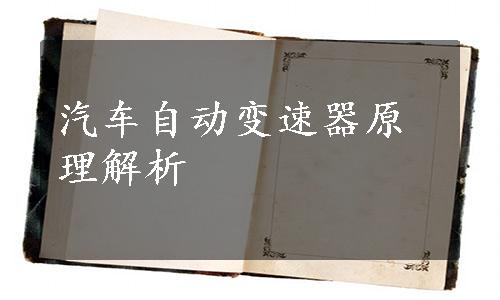 汽车自动变速器原
理解析